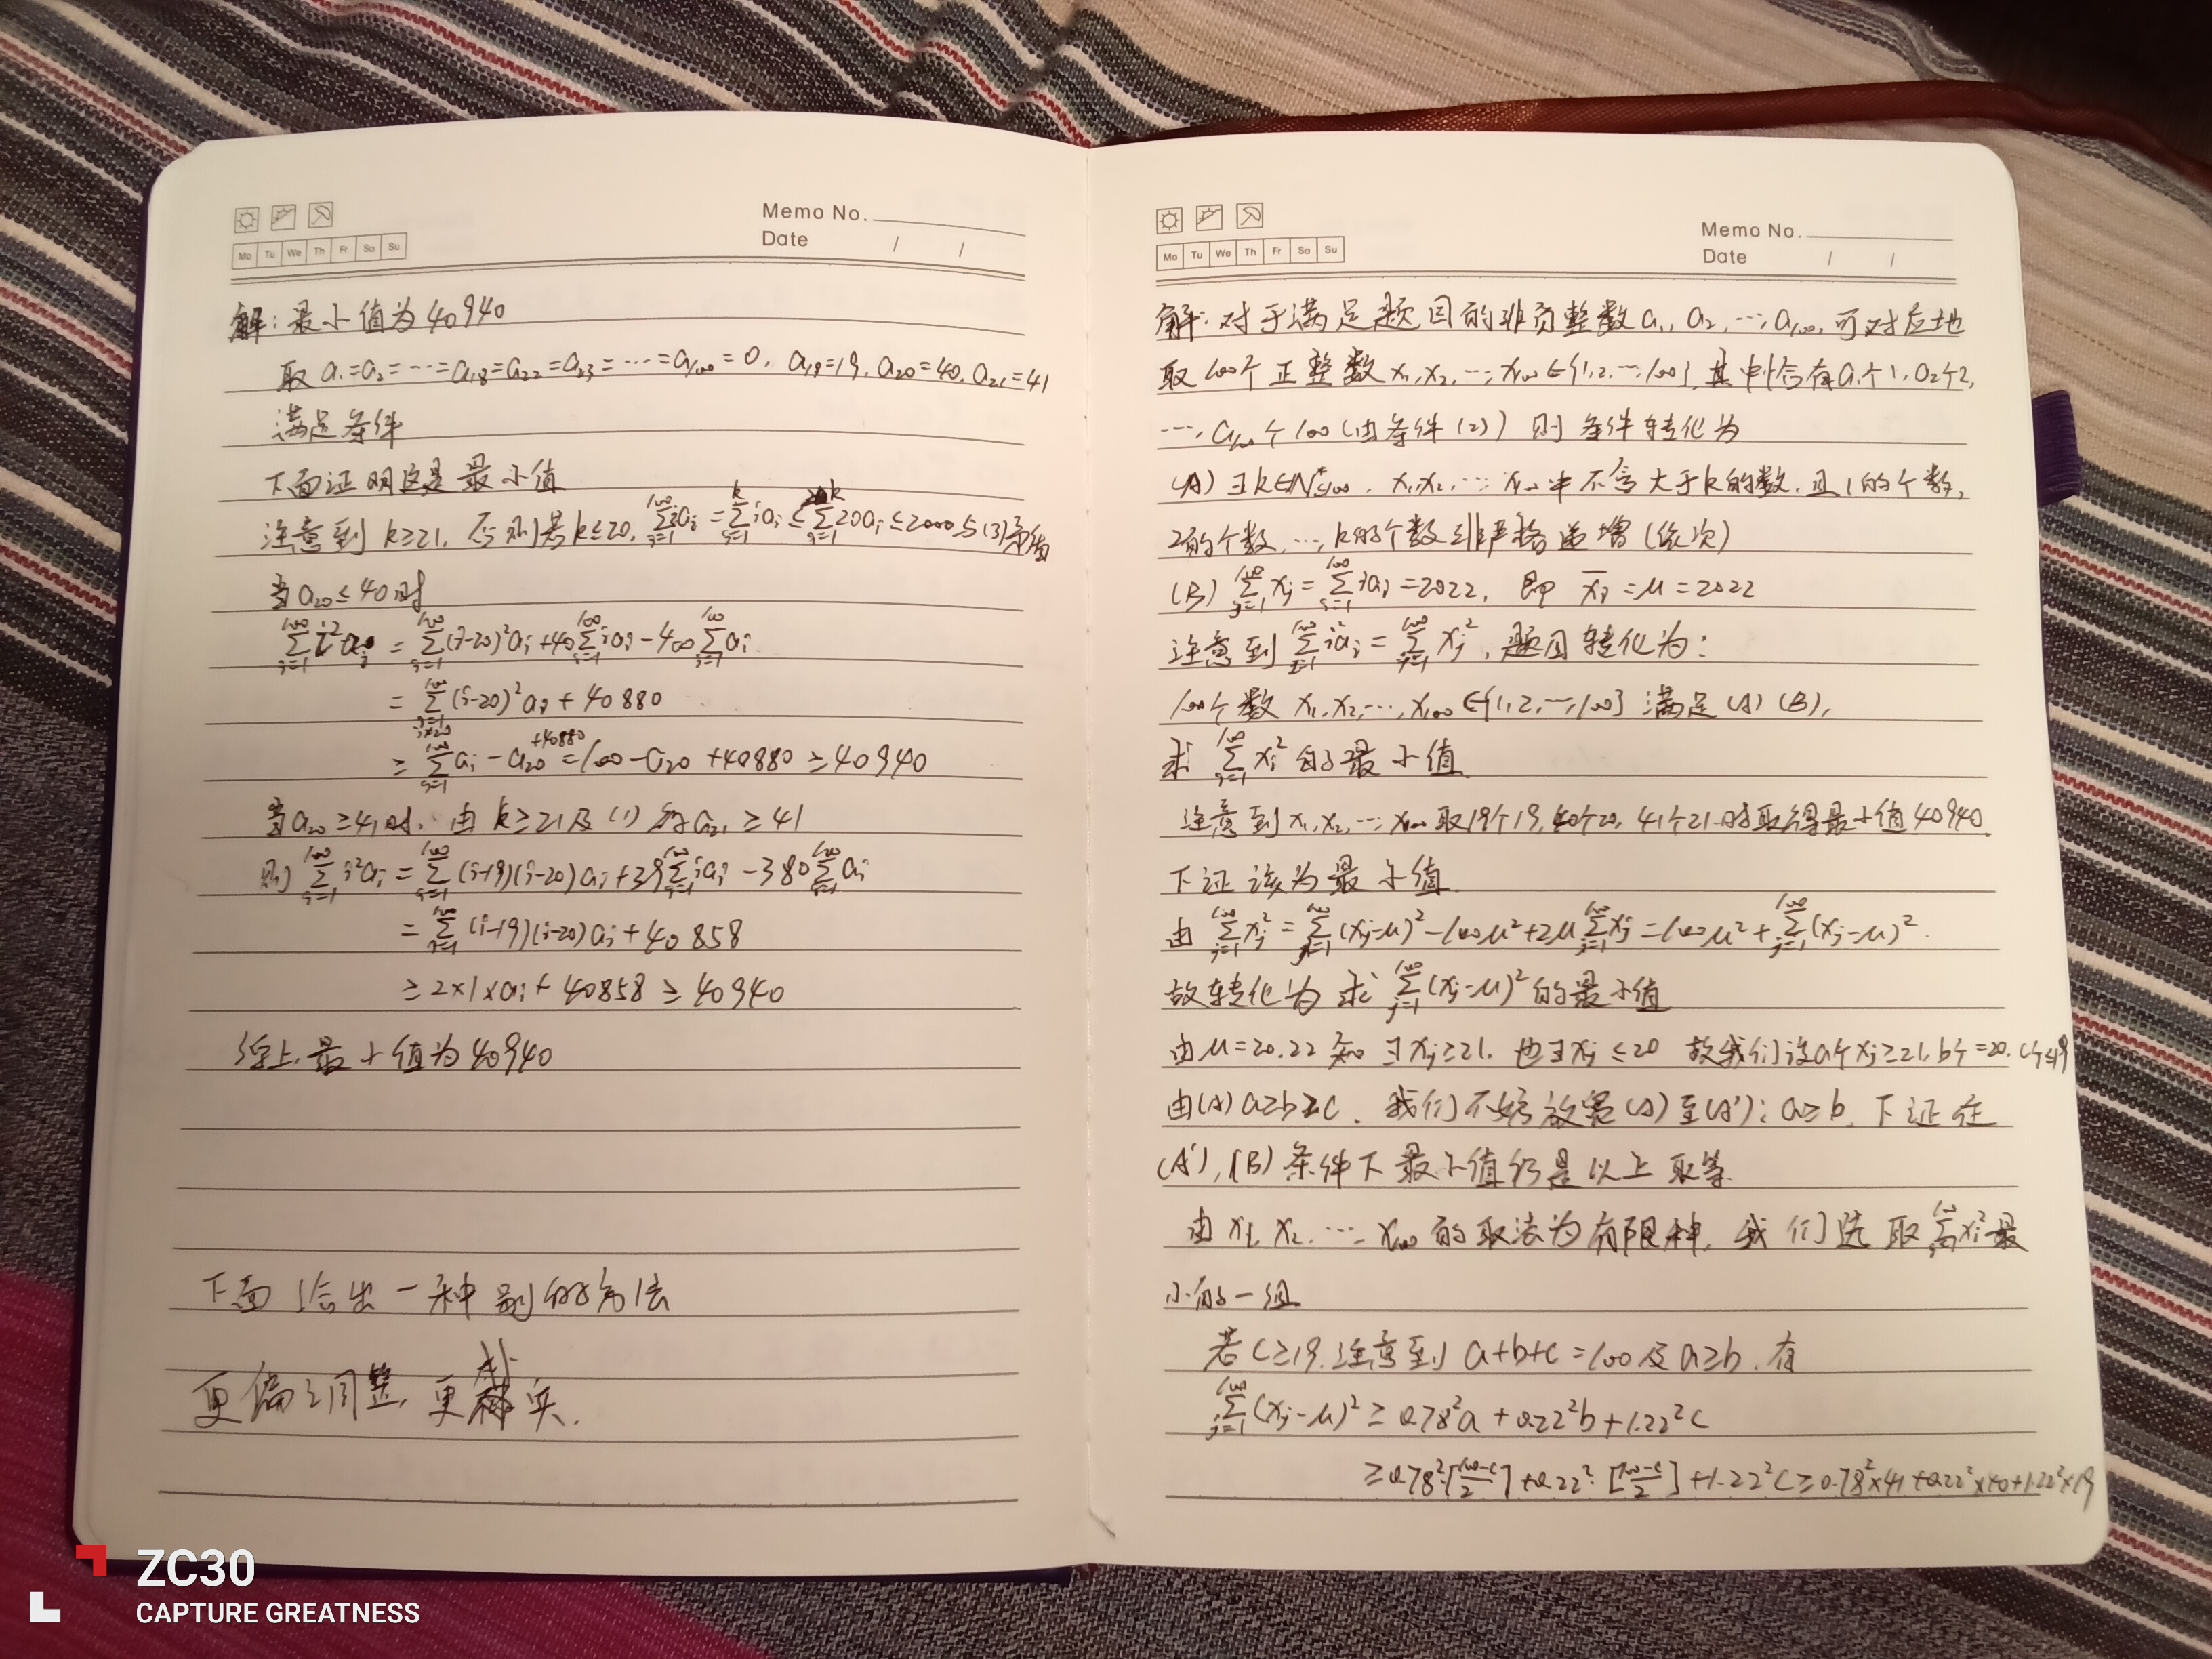 Memo No.
Date / /
Mo Tu We Th Fr Sa Su
解:最小值为40940
取 a₁=a₂=…=a₁₈=a₂₂=a₂₃=…=a₁₀₀=0, a₁₉=19, a₂₀=40, a₂₁=41
满足条件
下面证明这是最小值
注意到 k≥21, 否则若k≤20, ∑_{i=1}^{100} iaᵢ = ∑_{i=1}^{k} iaᵢ ≤ ∑_{i=1}^{k} 20aᵢ ≤ 2000与(3)矛盾
当a₂₀≤40时
∑_{i=1}^{100} i²aᵢ = ∑_{i=1}^{100} (i-20)²aᵢ + 40∑_{i=1}^{100} iaᵢ - 400∑_{i=1}^{100} aᵢ
= ∑_{i=1}^{100} (i-20)²aᵢ + 40880
≥ ∑_{i=1}^{100} aᵢ - a₂₀ +40880 = 100-a₂₀ +40880 ≥ 40940
当a₂₀≥41时, 由k≥21及(1)知a₂₁≥41
则 ∑_{i=1}^{100} i²aᵢ = ∑_{i=1}^{100} (i-19)(i-20)aᵢ + 39∑_{i=1}^{100} iaᵢ - 380∑_{i=1}^{100} aᵢ
= ∑_{i=1}^{100} (i-19)(i-20)aᵢ + 40858
≥ 2×1×aᵢ + 40858 ≥ 40940
综上,最小值为40940
下面给出一种别的方法
更偏调整,更
实.
Memo No.
Date / /
Mo Tu We Th Fr Sa Su
解:对于满足题目的非负整数a₁, a₂, …, a₁₀₀, 可对应地
取100个正整数x₁, x₂, …, x₁₀₀∈{1,2,…,100}, 其中恰有a₁个1, a₂个2,
…, a₁₀₀个100 (由条件(2)) 则条件转化为
(A) ∃k∈N*≤100, x₁,x₂,…x₁₀₀中不含大于k的数,且1的个数,
2的个数, …, k的个数非严格递增(依次)
(B) ∑_{j=1}^{100} xⱼ = ∑_{i=1}^{100} iaᵢ = 2022, 即 x̄ⱼ = μ = 2022
注意到 ∑_{i=1}^{100} i²aᵢ = ∑_{j=1}^{100} xⱼ², 题目转化为:
100个数 x₁,x₂,…,x₁₀₀∈{1,2,…,100} 满足(A)(B),
求 ∑_{j=1}^{100} xⱼ² 的最小值
注意到x₁,x₂,…,x₁₀₀取19个19, 40个20, 41个21时取得最小值40940.
下证该为最小值
由 ∑_{j=1}^{100} xⱼ² = ∑_{j=1}^{100} (xⱼ-μ)² - 100μ² + 2μ∑_{j=1}^{100} xⱼ = 100μ² + ∑_{j=1}^{100} (xⱼ-μ)².
故转化为求 ∑_{j=1}^{100} (xⱼ-μ)² 的最小值
由μ=20.22知∃xⱼ≥21, 也∃xⱼ≤20 故我们设a个xⱼ≥21, b个=20, c个≤19
由(A) a≥b≥c. 我们不妨放宽(A)至(A'): a≥b, 下证在
(A'), (B)条件下最小值仍是以上取等
由x₁, x₂, …, x₁₀₀的取法为有限种, 我们选取∑xⱼ²最
小的一组
若c≥19,注意到 a+b+c=100及a≥b, 有
∑_{j=1}^{100} (xⱼ-μ)² ≥ 0.78²a + 0.22²b + 1.22²c
≥ 0.78²·⌈(100-c)/2⌉ + 0.22²·[(100-c)/2] + 1.22²c ≥ 0.78²×41 + 0.22²×40 + 1.22²×19
ZC30
CAPTURE GREATNESS